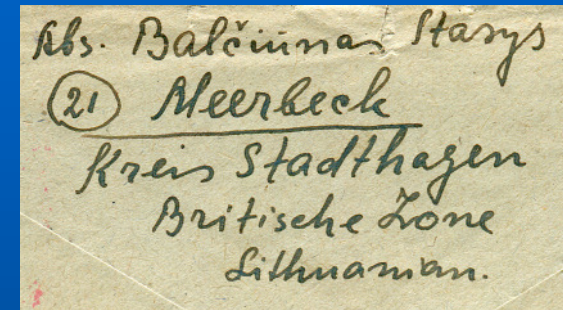 Abs. Balčiūnas Stasys
(21) Meerbeck
Kreis Stadthagen
Britische Zone
Lithuanian.